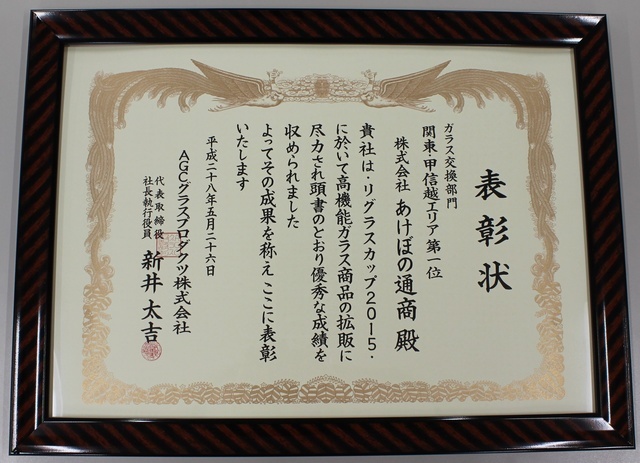 表彰状
ガラス交換部門
関東・甲信越エリア 第一位
株式会社 あけぼの通商 殿
貴社は・リグラスカップ2015・
に於いて高機能ガラス商品の拡販に
尽力され頭書のとおり優秀な成績を
収められました
よってその成果を称え ここに表彰
いたします
平成二十八年五月二十六日
AGCグラスプロダクツ株式会社
代表取締役
社長執行役員
新井 太吉